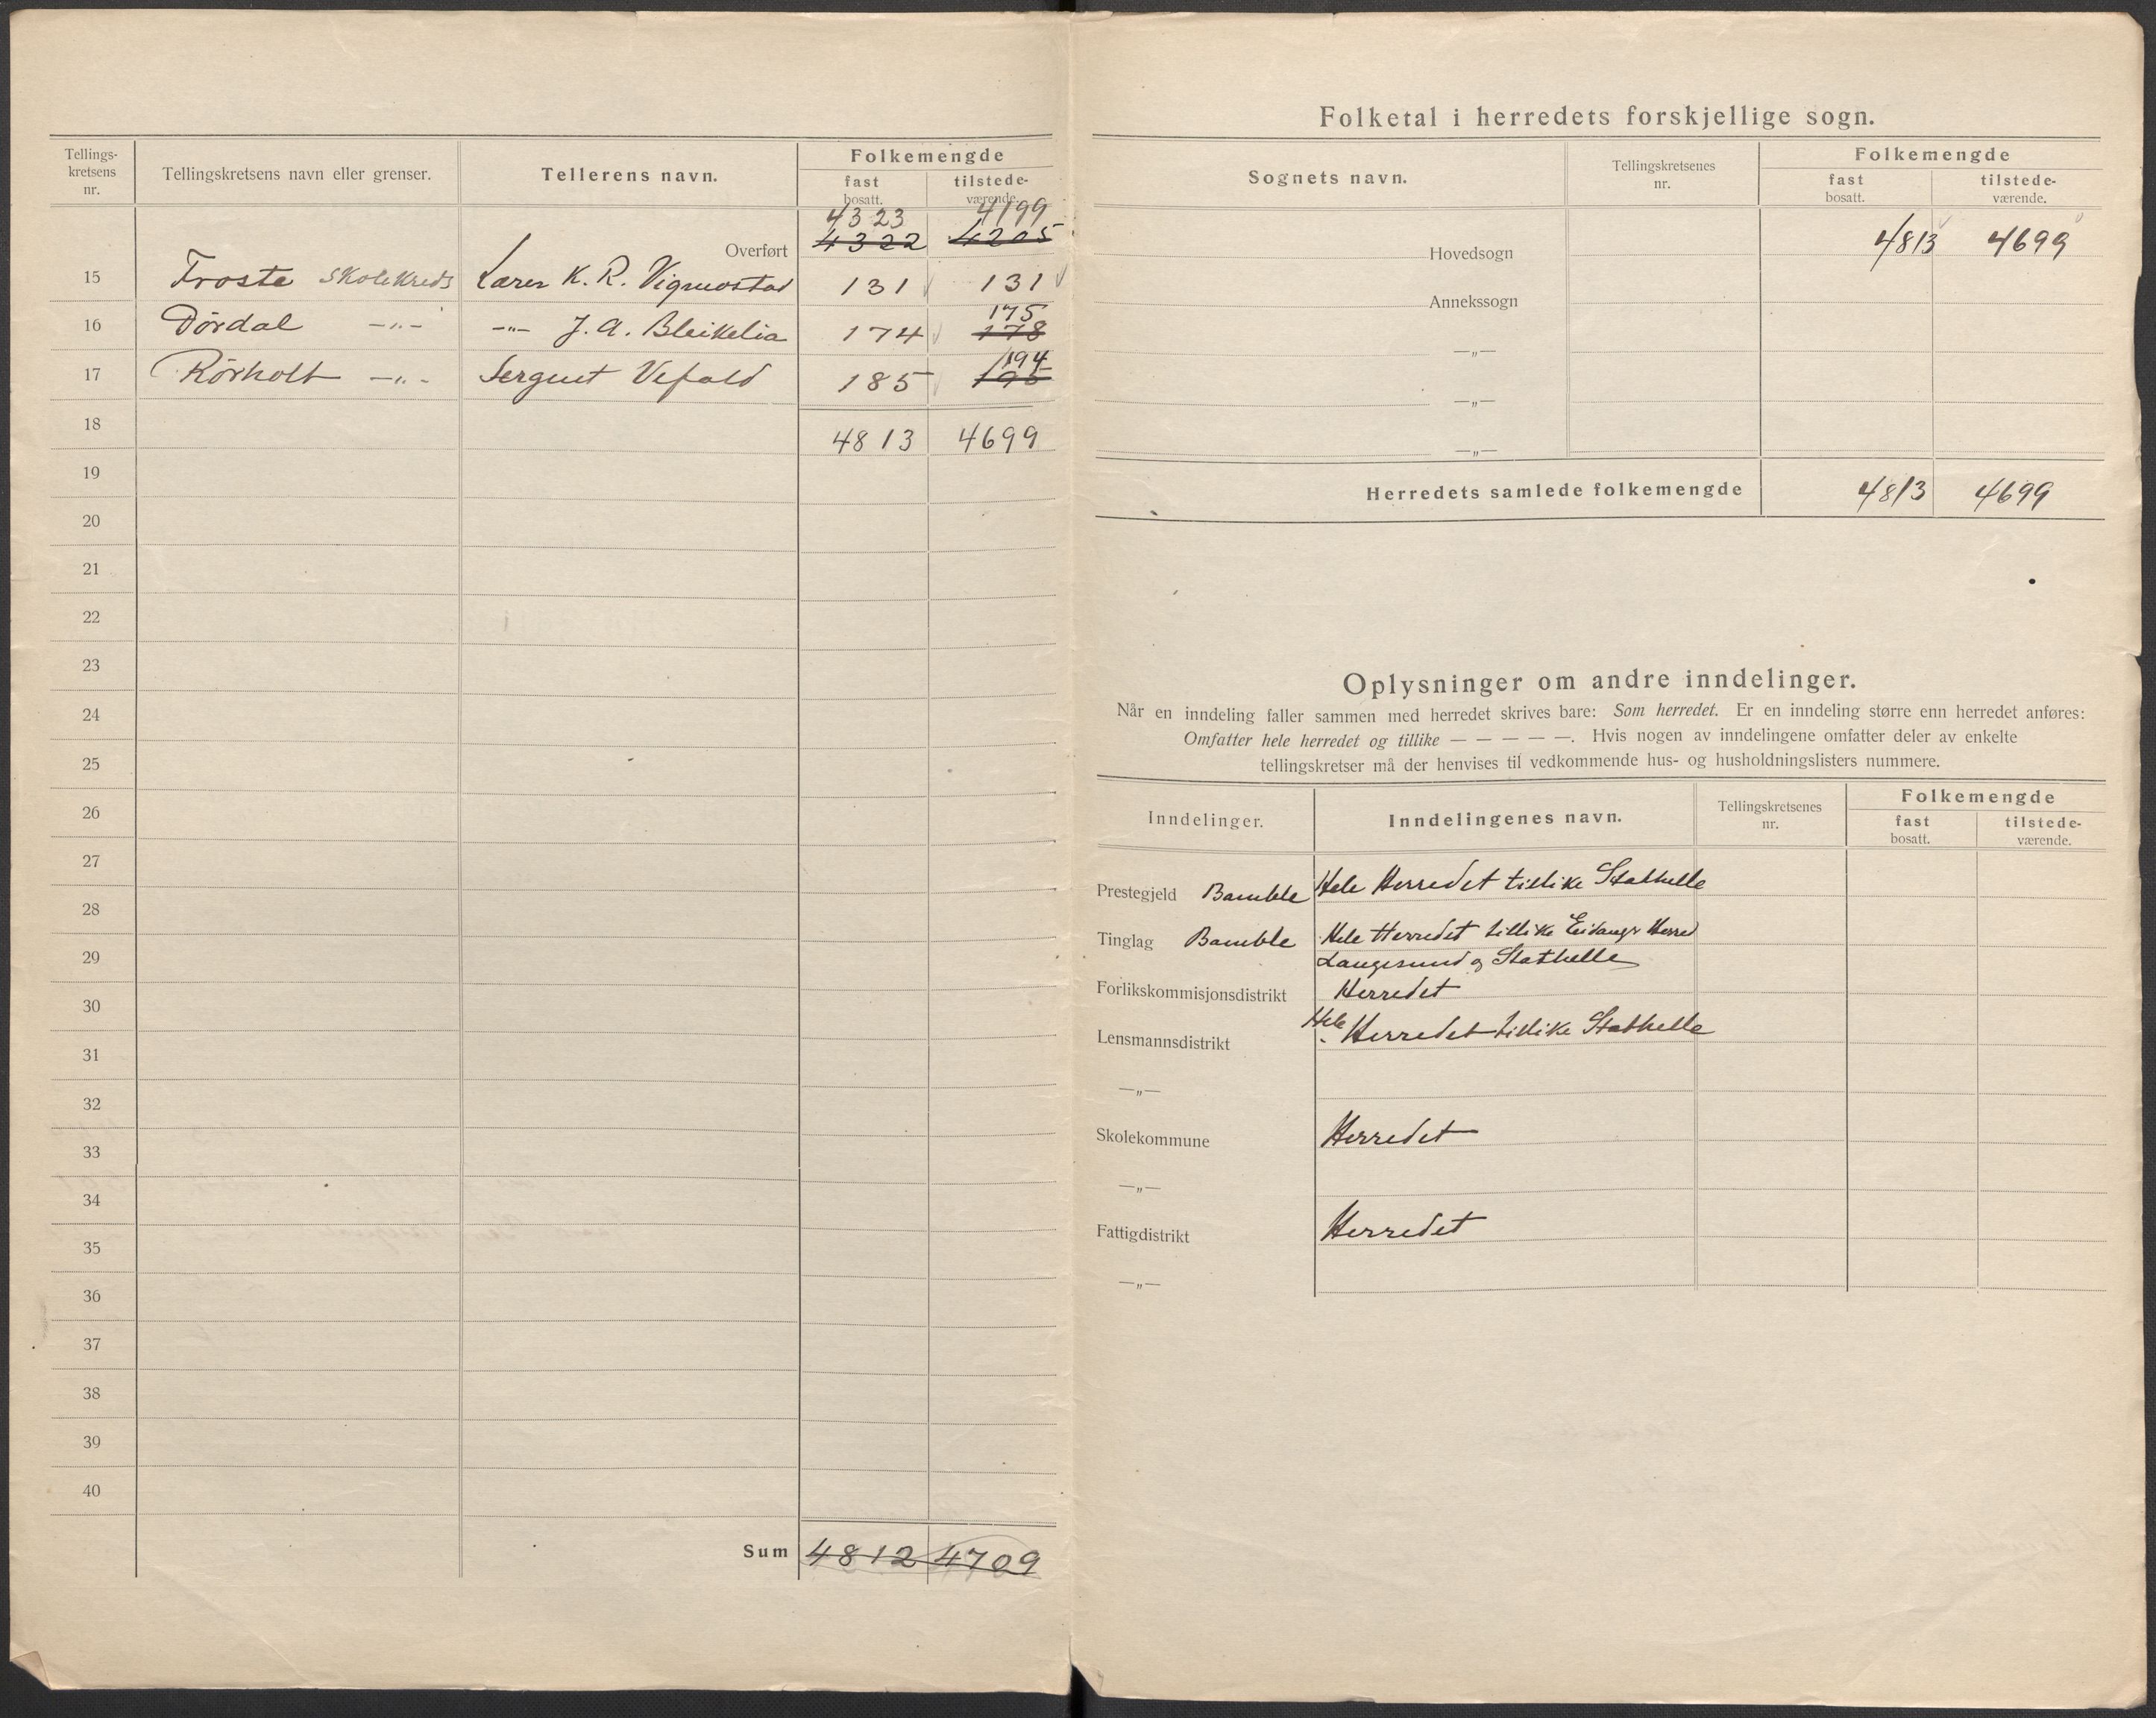 Tellings-
kretsens
nr.
Tellingskretsens navn eller grenser.
Tellerens navn.
Folkemengde
fast
bosatt.
tilstede-
værende.
4323 4199
Overført 4322 4205
15 Froste skolekreds Lærer K. R. Vigmostad 131 131
175
16 Dórdal —„— —„— J. A. Bleikelia 174 178
194
17 Rórholt —„— Sergent 185 195
18 4813 4699
19
20
21
22
23
24
25
26
27
28
29
30
31
32
33
34
35
36
37
38
39
40
Sum 4812 4709
Folketal i herredets forskjellige sogn.
Sognets navn.
Tellingskretsenes
nr.
Folkemengde
fast
bosatt.
tilstede-
værende.
Hovedsogn 4813 4699
Annekssogn
—„—
—„—
—„—
Herredets samlede folkemengde 4813 4699
Oplysninger om andre inndelinger.
Når en inndeling faller sammen med herredet skrives bare: Som herredet. Er en inndeling større enn herredet anføres:
Omfatter hele herredet og tillike — — — — —. Hvis nogen av inndelingene omfatter deler av enkelte
tellingskretser må der henvises til vedkommende hus- og husholdningslisters nummere.
Inndelinger.
Inndelingenes navn.
Tellingskretsenes
nr.
Folkemengde
fast
bosatt.
tilstede-
værende.
Prestegjeld Bamble Hele Herredet tillike Stathelle
Tinglag Bamble Hele Herredet tillike Eidanger Herred
Langesund og Stathelle
Forlikskommisjonsdistrikt Herredet
Lensmannsdistrikt Hele Herredet tillike Stathelle
—„—
Skolekommune Herredet
—„—
Fattigdistrikt Herredet
—„—